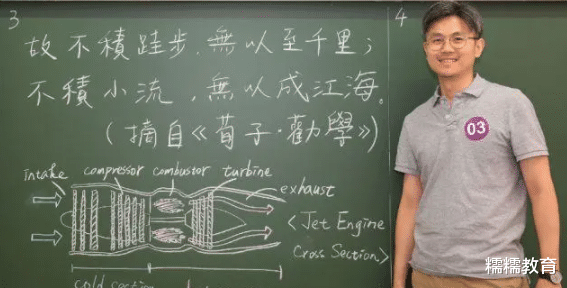 3
4
故不積跬步,無以至千里;
不積小流,無以成江海。
(摘自《荀子·勸學》)
03
intake compressor combustor turbine
exhaust
<Jet Engine
Cross Section>
cold section
糯糯教育